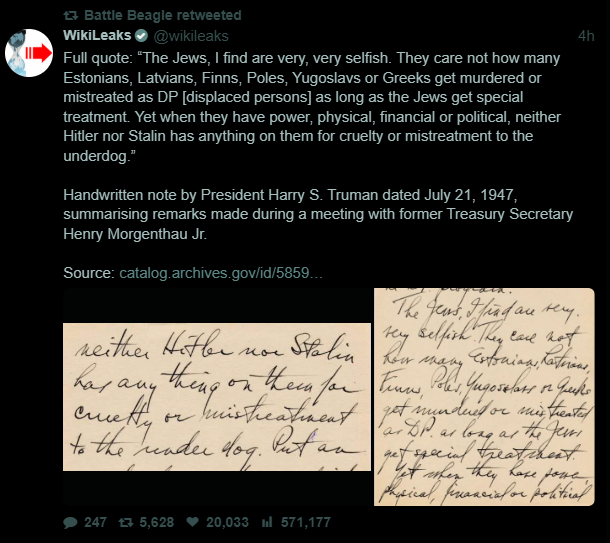 Battle Beagle retweeted
WikiLeaks @wikileaks 4h
Full quote: “The Jews, I find are very, very selfish. They care not how many
Estonians, Latvians, Finns, Poles, Yugoslavs or Greeks get murdered or
mistreated as DP [displaced persons] as long as the Jews get special
treatment. Yet when they have power, physical, financial or political, neither
Hitler nor Stalin has anything on them for cruelty or mistreatment to the
underdog.”
Handwritten note by President Harry S. Truman dated July 21, 1947,
summarising remarks made during a meeting with former Treasury Secretary
Henry Morgenthau Jr.
Source: catalog.archives.gov/id/5859...
neither Hitler nor Stalin
has any thing on them for
cruelty or mistreatment
to the under dog. Put an
program.
The Jews, I find are very,
very selfish. They care not
how many Estonians, Latvians,
Finns, Poles, Yugoslavs or Greeks
get murdered or mistreated
as D.P. as long as the Jews
get special treatment.
Yet when they have power,
physical, financial or political
247 5,628 20,033 571,177